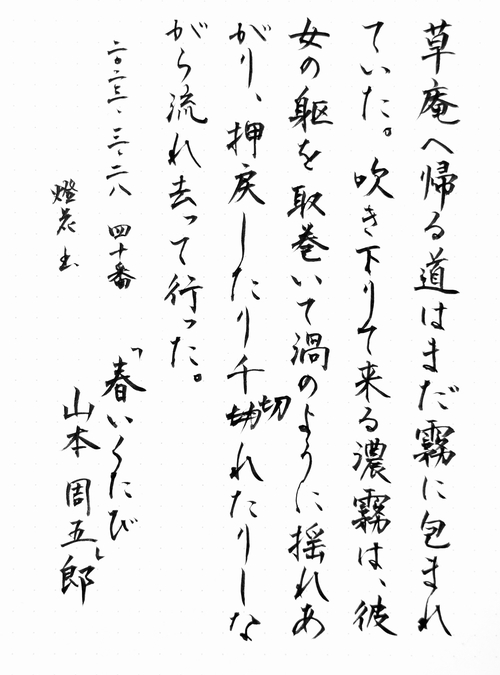 草庵へ帰る道はまだ霧に包まれ
ていた。吹き下りて来る濃霧は、彼
女の躯を取巻いて渦のように揺れあ
がり、押戻したり千切れたりしな
がら流れ去って行った。
二〇二三・三・二八 四十番
「春いくたび」
山本周五郎